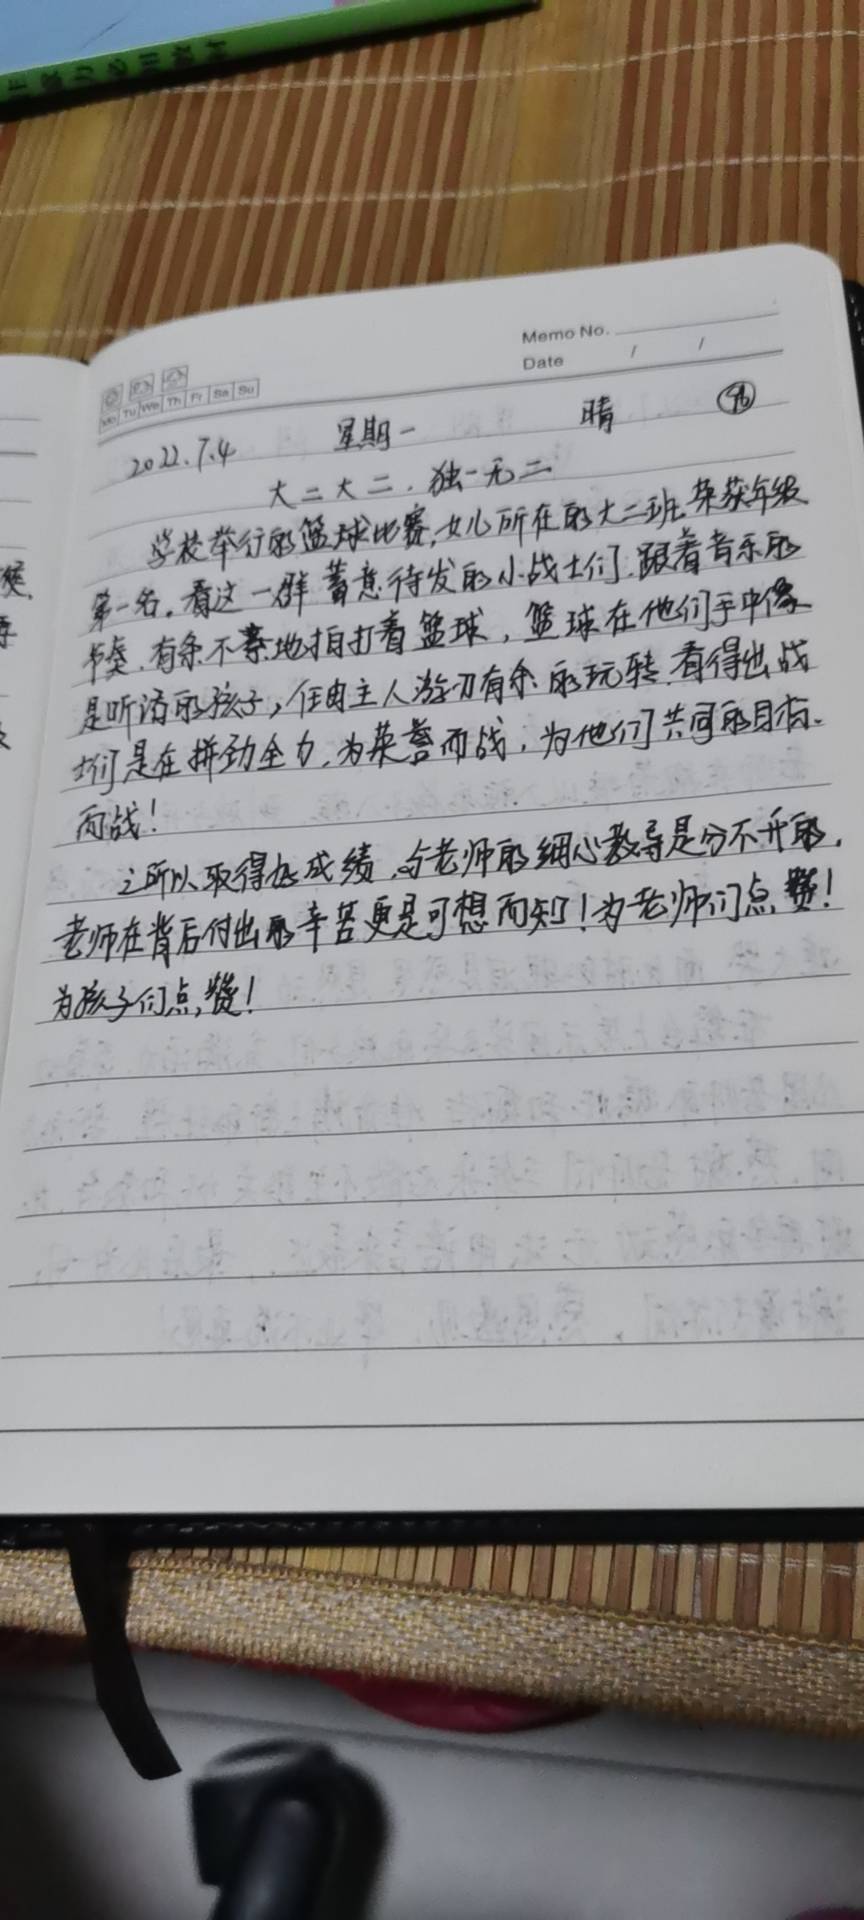 Memo No.
Date / /
Mo Tu We Th Fr Sa Su
2022.7.4 星期一 晴
大二大二，独一无二
学校举行的篮球比赛，女儿所在的大二班荣获年级
第一名。看这一群蓄意待发的小战士们，跟着音乐的
节奏，有条不紊地拍打着篮球，篮球在他们手中像
是听话的孩子，任由主人游刃有余的玩转，看得出战
士们是在拼劲全力，为荣誉而战，为他们共同的目标
而战！
之所以取得好成绩，与老师的细心教导是分不开的，
老师在背后付出的辛苦更是可想而知！为老师们点赞！
为孩子们点赞！